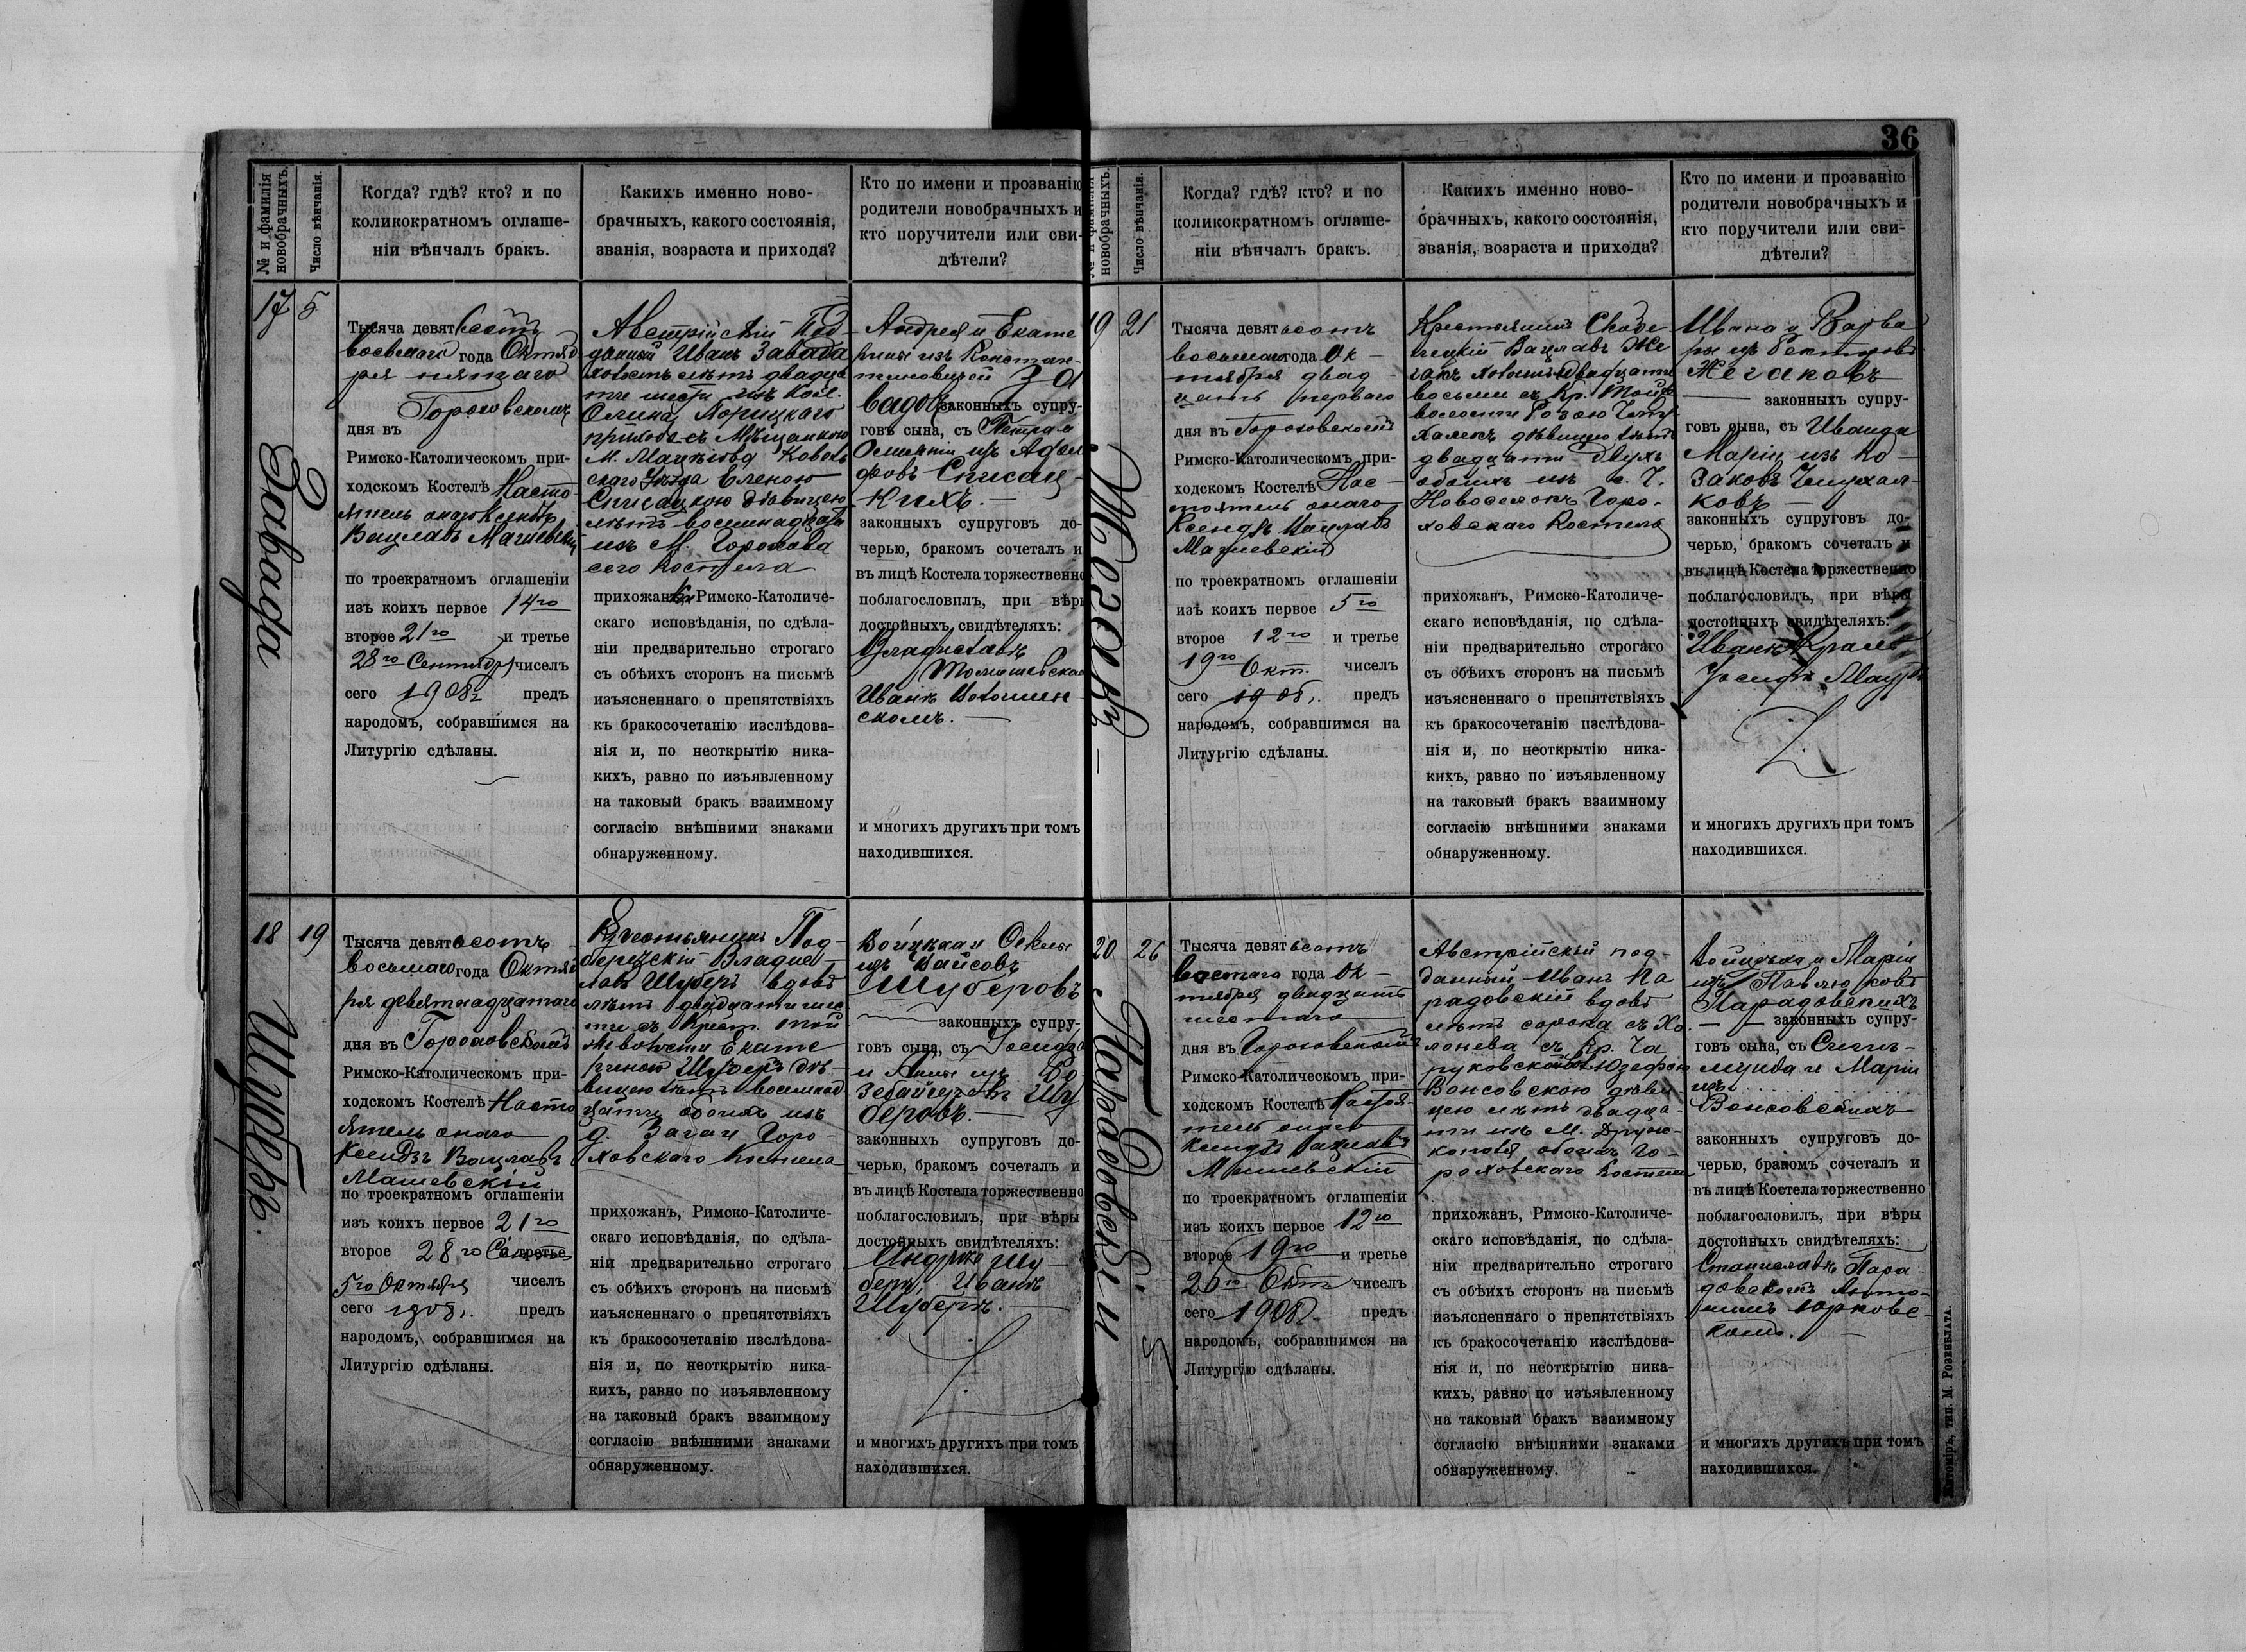 36
№ и фамилія новобрачныхъ.
Число вѣнчанія.
Когда? гдѣ? кто? и по
коликократномъ оглаше-
ніи вѣнчалъ бракъ.
Какихъ именно ново-
брачныхъ, какого состоянія,
званія, возраста и прихода?
Кто по имени и прозванію
родители новобрачныхъ и
кто поручители или сви-
дѣтели?
17
5
Завада
Тысяча девятьсотъ
восьмаго года Октяб
ря пятаго
Гороховскомъ
дня въ
Римско-Католическомъ при-
ходскомъ Костелѣ Насто-
ятель онаго Ксендзъ
Вацлавъ Машевскій
по троекратномъ оглашеніи
изъ коихъ первое 14го
второе 21го и третье
28го Сентября чиселъ
сего 1908г предъ
народомъ, собравшимся на
Литургію сдѣланы.
Австрійскій Под-
данный Иванъ Завада
холостъ лѣтъ двадца
ти шести изъ Кол.
прихода съ Мѣщанкою
м. Мацѣіова Ковель
скаго Уѣзда Еленою
Списацкою дѣвицею
лѣтъ восемнадцати
изъ М. Горохова
сего Костела
прихожан Римско-Католиче-
скаго исповѣданія, по сдѣла-
ніи предварительно строгаго
съ обѣихъ сторонъ на письмѣ
изъясненнаго о препятствіяхъ
къ бракосочетанію изслѣдова-
нія и, по неоткрытію ника-
кихъ, равно по изъявленному
на таковый бракъ взаимному
согласію внѣшними знаками
обнаруженному.
Андрея и Екате
рины изъ Констан-
тиновичей За
вадовъ законныхъ супру-
говъ сына, съ Петра и
изъ Адол
фовъ Списац-
кихъ.
законныхъ супруговъ до-
черью, бракомъ сочеталъ и
въ лицѣ Костела торжественно
поблагословилъ, при вѣры
достойныхъ свидѣтеляхъ:
Владиславъ
Иванъ
скомъ.
и многихъ другихъ при томъ
находившихся.
18
19
Шуберъ.
Тысяча девятьсотъ
восьмаго года Октяб
ря девятнадцатаго
дня въ Гороховскомъ
Римско-Католическомъ при-
ходскомъ Костелѣ Насто
ятель онаго
Ксендзъ Вацлавъ
Машевскій
по троекратномъ оглашеніи
изъ коихъ первое 21го
второе 28го Сен. третье
5го Октября чиселъ
сего 1908г. предъ
народомъ, собравшимся на
Литургію сдѣланы.
Крестьянинъ Под-
березскій Владис-
лавъ Шуберъ вдовъ
лѣтъ двадцати шес
ти съ Крест. той
же волости Екате
риною Шуберъ дѣ-
вицею лѣтъ восемнад
цати обоихъ изъ
д. Загаи Горо-
ховскаго Костела
прихожанъ, Римско-Католиче-
скаго исповѣданія, по сдѣла-
ніи предварительно строгаго
съ обѣихъ сторонъ на письмѣ
изъясненнаго о препятствіяхъ
къ бракосочетанію изслѣдова-
нія и, по неоткрытію ника-
кихъ, равно по изъявленному
на таковый бракъ взаимному
согласію внѣшними знаками
обнаруженному.
Войцѣха и Феклы
изъ Вайсовъ
Шуберовъ
законныхъ супру-
говъ сына, съ Іосифа
и Анны изъ
Шу
беровъ.
законныхъ супруговъ до-
черью, бракомъ сочеталъ и
въ лицѣ Костела торжественно
поблагословилъ, при вѣры
достойныхъ свидѣтеляхъ:
Андрже Шу-
беръ, Иванъ
Шуберъ.
и многихъ другихъ при томъ
находившихся.
новобрачныхъ.
Число вѣнчанія.
Когда? гдѣ? кто? и по
коликократномъ оглаше-
ніи вѣнчалъ бракъ.
Какихъ именно ново-
брачныхъ, какого состоянія,
званія, возраста и прихода?
Кто по имени и прозванію
родители новобрачныхъ и
кто поручители или сви-
дѣтели?
19
21
Жегакъ
Тысяча девятьсотъ
восьмаго года Ок-
тября двад-
цать перваго
дня въ Гороховскомъ
Римско-Католическомъ при-
ходскомъ Костелѣ Нас-
тоятель онаго
Ксендзъ Вацлавъ
Машевскій
по троекратномъ оглашеніи
изъ коихъ первое 5го
второе 12го и третье
19го Окт. чиселъ
сего 1908г. предъ
народомъ, собравшимся на
Литургію сдѣланы.
Крестьянинъ Скобе
лецкій Вацлавъ Же
гакъ холостъ двадцати
восьми съ Кр. той же
волости Розою
дѣвицею лѣтъ
двадцати двухъ
обоихъ изъ с. Ч.
Новоселокъ Горо-
ховскаго Костела
прихожанъ, Римско-Католиче-
скаго исповѣданія, по сдѣла-
ніи предварительно строгаго
съ обѣихъ сторонъ на письмѣ
изъясненнаго о препятствіяхъ
къ бракосочетанію изслѣдова-
нія и, по неоткрытію ника-
кихъ, равно по изъявленному
на таковый бракъ взаимному
согласію внѣшними знаками
обнаруженному.
Ивана и Варва
ры изъ
Жегаковъ
законныхъ супру-
говъ сына, съ Ивана и
Маріи изъ Ко-
заковъ
ковъ
законныхъ супруговъ до-
черью, бракомъ сочеталъ и
въ лицѣ Костела торжественно
поблагословилъ, при вѣры
достойныхъ свидѣтеляхъ:
Иванъ Краль
Іосифъ
и многихъ другихъ при томъ
находившихся.
20
26
Парадовскій
Тысяча девятьсотъ
года Ок-
тября двадцать
шестаго
дня въ Гороховскомъ
Римско-Католическомъ при-
ходскомъ Костелѣ Настоя-
тель онаго
Ксендзъ Вацлавъ
Машевскій
по троекратномъ оглашеніи
изъ коихъ первое 12го
второе 19го и третье
26го Окт чиселъ
сего 1908г. предъ
народомъ, собравшимся на
Литургію сдѣланы.
Австрійскій под-
данный Иванъ Па
радовскій вдовъ
лѣтъ сорока съ Хо
лонева съ Кр. Ча
руковской вол. Юзефою
Вонсовскою дѣви
цею лѣтъ двадца-
ти изъ М. Друж-
кополя обоихъ Го-
роховскаго Костела
прихожанъ, Римско-Католиче-
скаго исповѣданія, по сдѣла-
ніи предварительно строгаго
съ обѣихъ сторонъ на письмѣ
изъясненнаго о препятствіяхъ
къ бракосочетанію изслѣдова-
нія и, по неоткрытію ника-
кихъ, равно по изъявленному
на таковый бракъ взаимному
согласію внѣшними знаками
обнаруженному.
Войцѣха и Маріи
изъ Павлюковъ
Парадовскихъ
законныхъ супру-
говъ сына, съ Сигиз-
мунда и Маріи
изъ
Вонсовскихъ
законныхъ супруговъ до-
черью, бракомъ сочеталъ и
въ лицѣ Костела торжественно
поблагословилъ, при вѣры
достойныхъ свидѣтеляхъ:
Станиславъ Пара-
довскомъ Анто-
нимъ Юрковс-
комъ.
и многихъ другихъ при томъ
находившихся.
Житоміръ, тип. М. Розенблата.